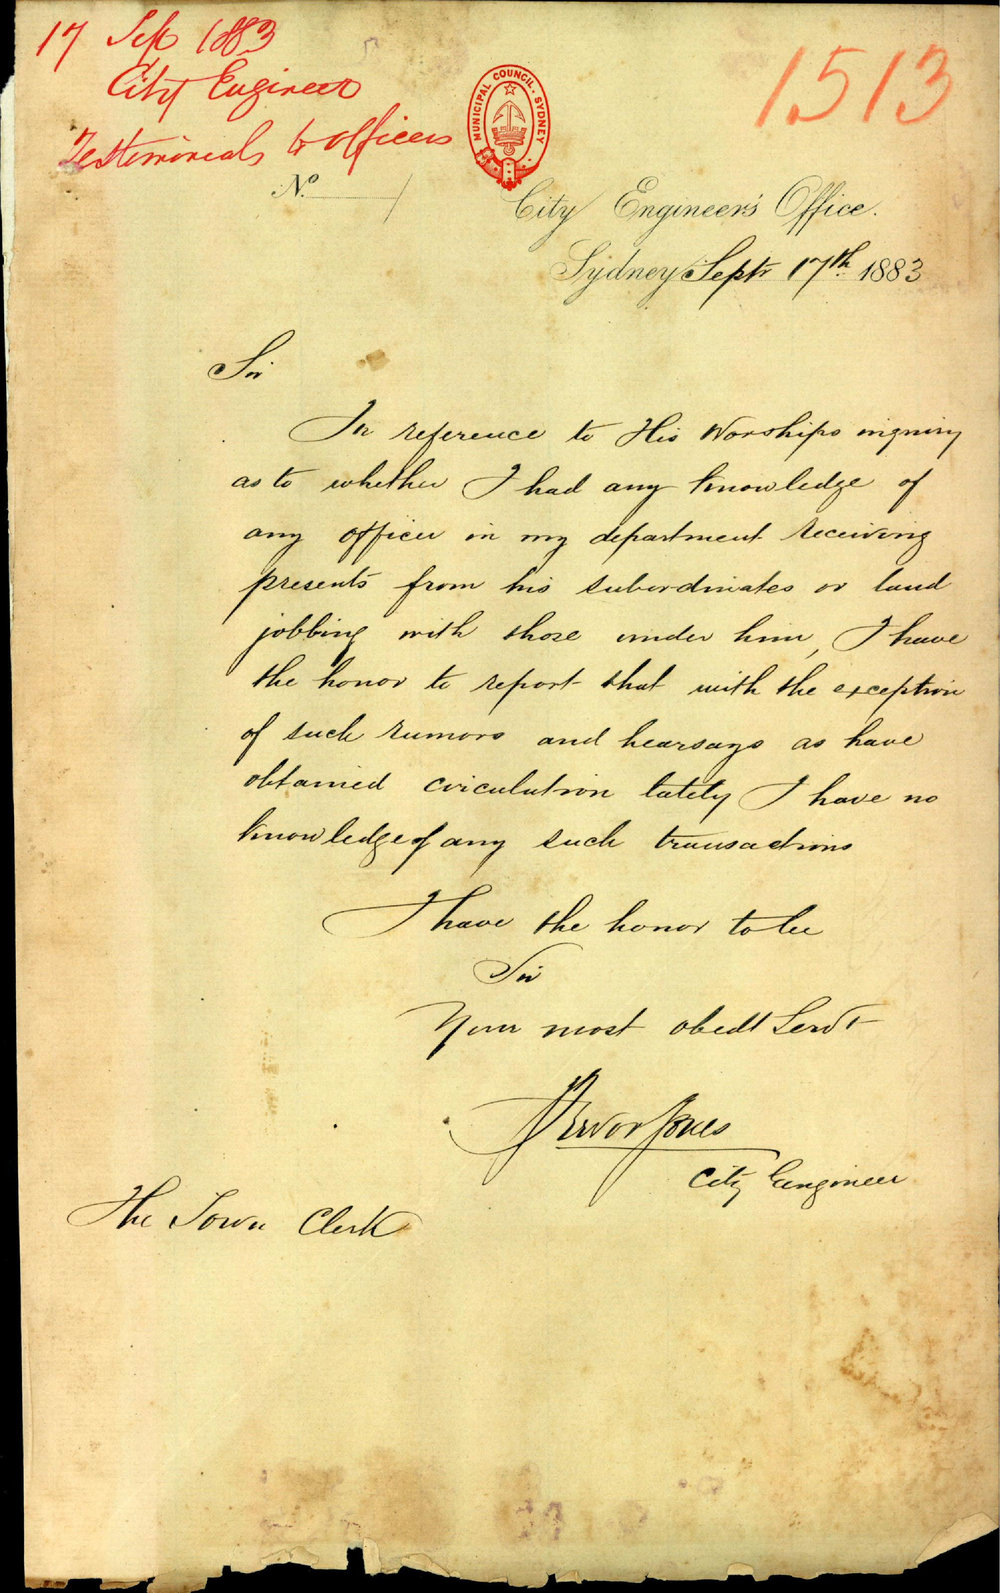 17 Sep 1883
City Engineer
Testimonials to officers
1513
MUNICIPAL COUNCIL. SYDNEY
No.
City Engineer's Office.
Sydney Septr 17th 1883
Sir
In reference to His Worships inquiry
as to whether I had any knowledge of
any officer in my department receiving
presents from his subordinates or land
jobbing with those under him, I have
the honor to report that with the exception
of such rumors and hearsays as have
obtained circulation lately I have no
knowledge of any such transactions
I have the honor to be
Sir
Your most obedt Servt
Trevor Jones
City Engineer
The Town Clerk